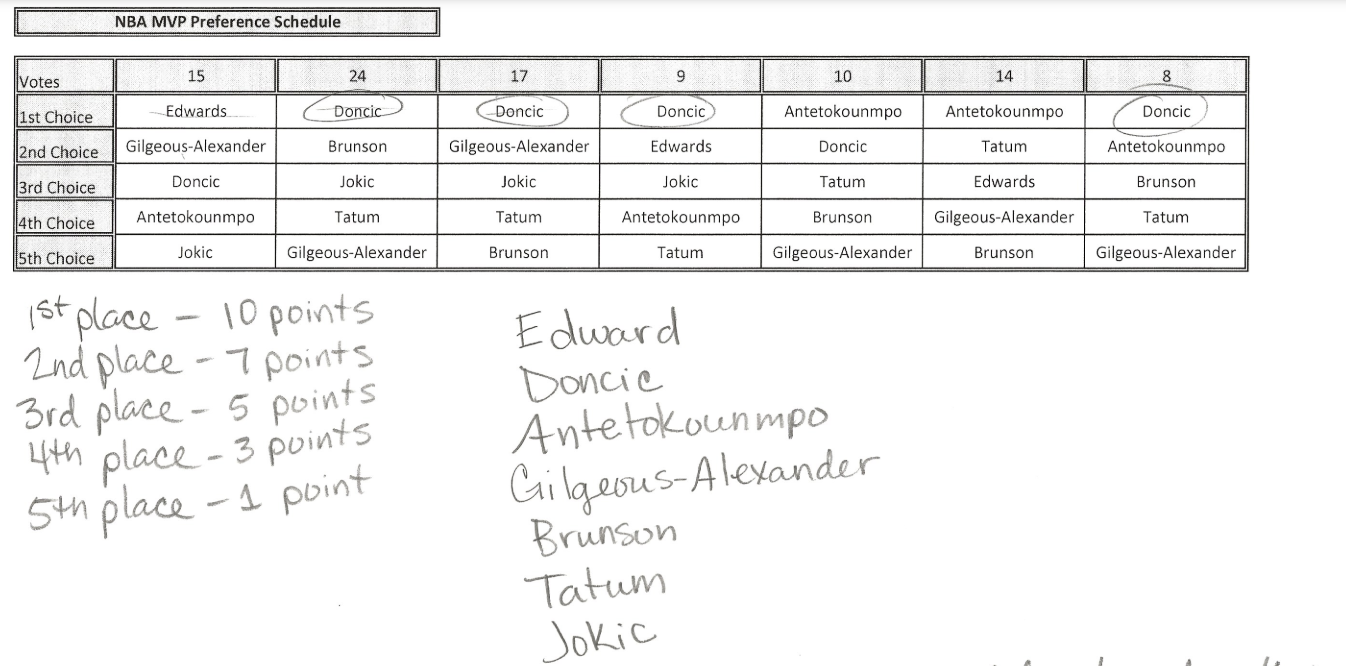 NBA MVP Preference Schedule
Votes 15 24 17 9 10 14 8
1st Choice Edwards Doncic Doncic Doncic Antetokounmpo Antetokounmpo Doncic
2nd Choice Gilgeous-Alexander Brunson Gilgeous-Alexander Edwards Doncic Tatum Antetokounmpo
3rd Choice Doncic Jokic Jokic Jokic Tatum Edwards Brunson
4th Choice Antetokounmpo Tatum Tatum Antetokounmpo Brunson Gilgeous-Alexander Tatum
5th Choice Jokic Gilgeous-Alexander Brunson Tatum Gilgeous-Alexander Brunson Gilgeous-Alexander
1st place - 10 points
2nd place - 7 points
3rd place - 5 points
4th place - 3 points
5th place - 1 point
Edward
Doncic
Antetokounmpo
Gilgeous-Alexander
Brunson
Tatum
Jokic